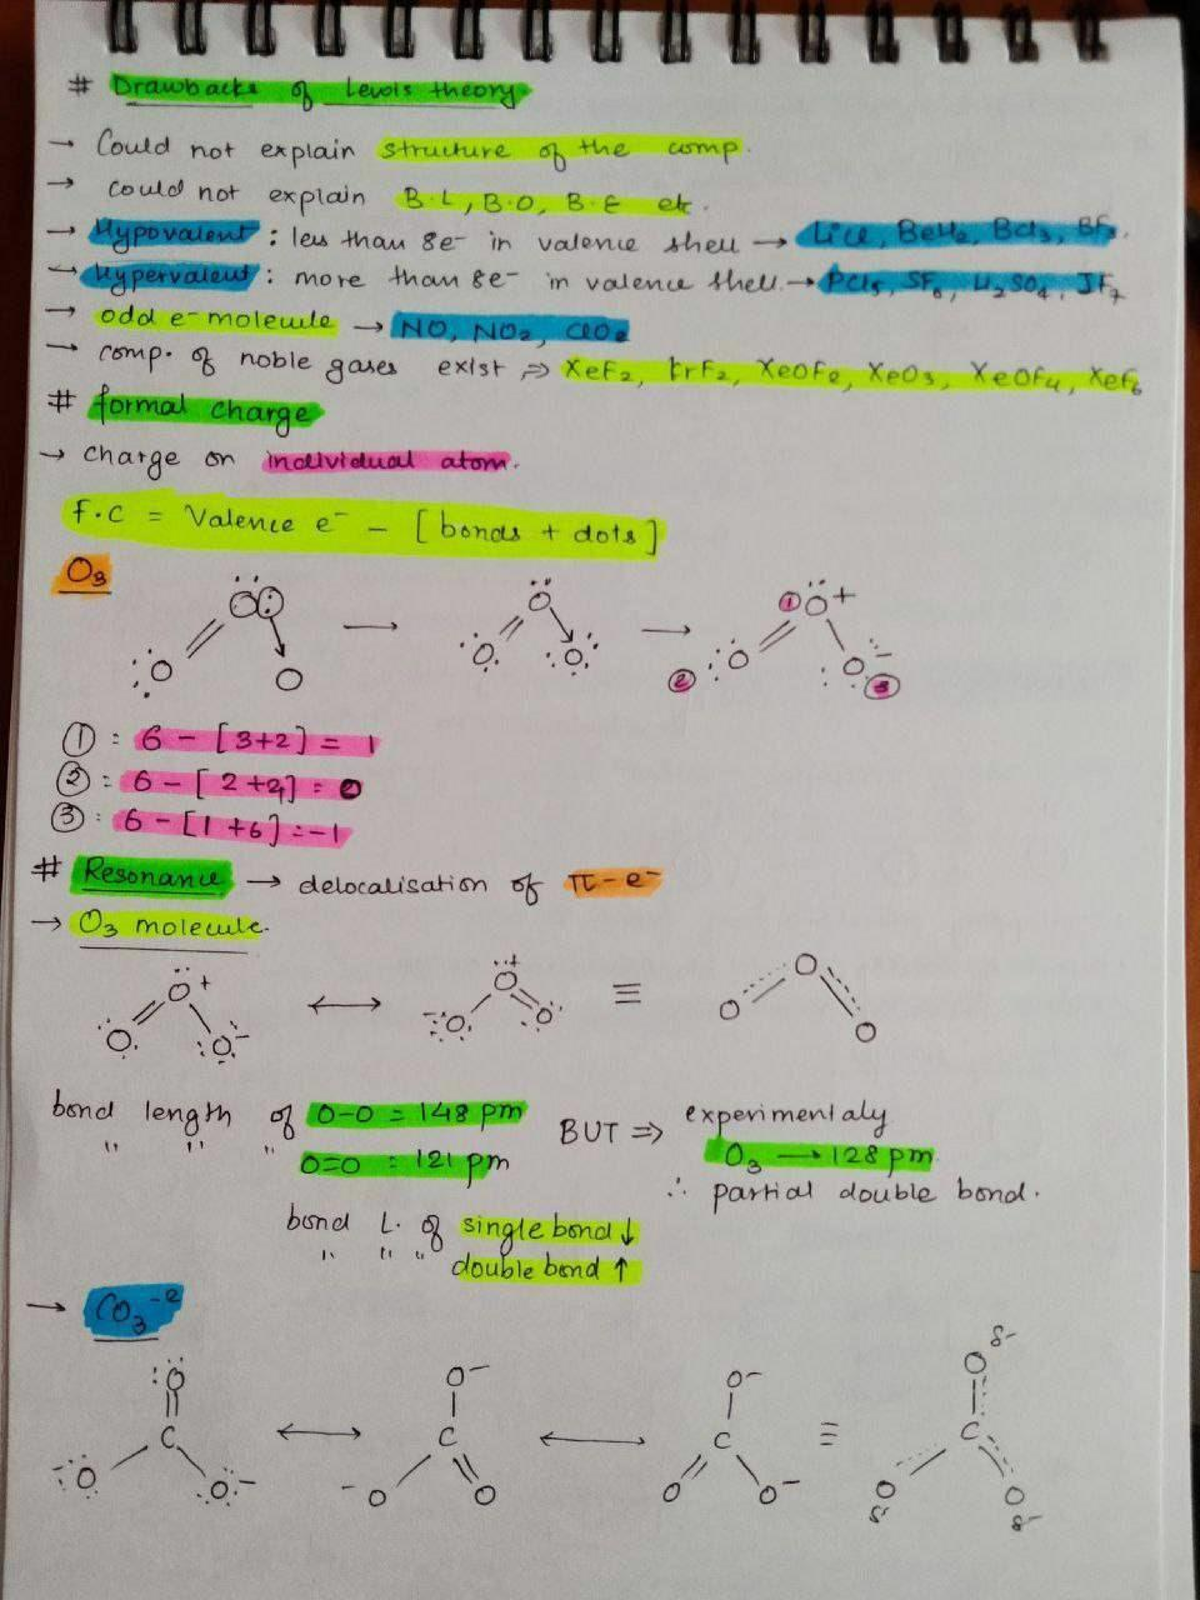 # Drawbacks of Lewis theory
→ Could not explain structure of the comp.
→ could not explain B.L, B.O, B.E etc.
→ Hypovalent : less than 8e⁻ in valence shell → LiCl, BeH₂, BCl₃, BF₃.
→ Hypervalent : more than 8e⁻ in valence shell. → PCl₅, SF₆, H₂SO₄, IF₇
→ odd e⁻ molecule → NO, NO₂, ClO₂
→ comp. of noble gases exist ⇒ XeF₂, KrF₂, XeOF₂, XeO₃, XeOF₄, XeF₆
# formal charge
→ charge on individual atom.
F.C = Valence e⁻ − [bonds + dots]
O₃
O O → O → ① O +
O O O O ② O O − ③
① : 6 − [3+2] = 1
② : 6 − [2+4] = 0
③ : 6 − [1+6] = −1
# Resonance → delocalisation of π-e⁻
→ O₃ molecule.
O + ↔ O + ≡ O
O O − − O O O O
bond length of O-O = 148 pm BUT ⇒ experimentaly
" " " O=O = 121 pm O₃ → 128 pm
∴ partial double bond.
bond L. of single bond ↓
" " " double bond ↑
→ CO₃⁻²
O O⁻ O⁻ O δ-
C ↔ C ↔ C ≡ C
− O O − − O O O O − O O
δ- δ-